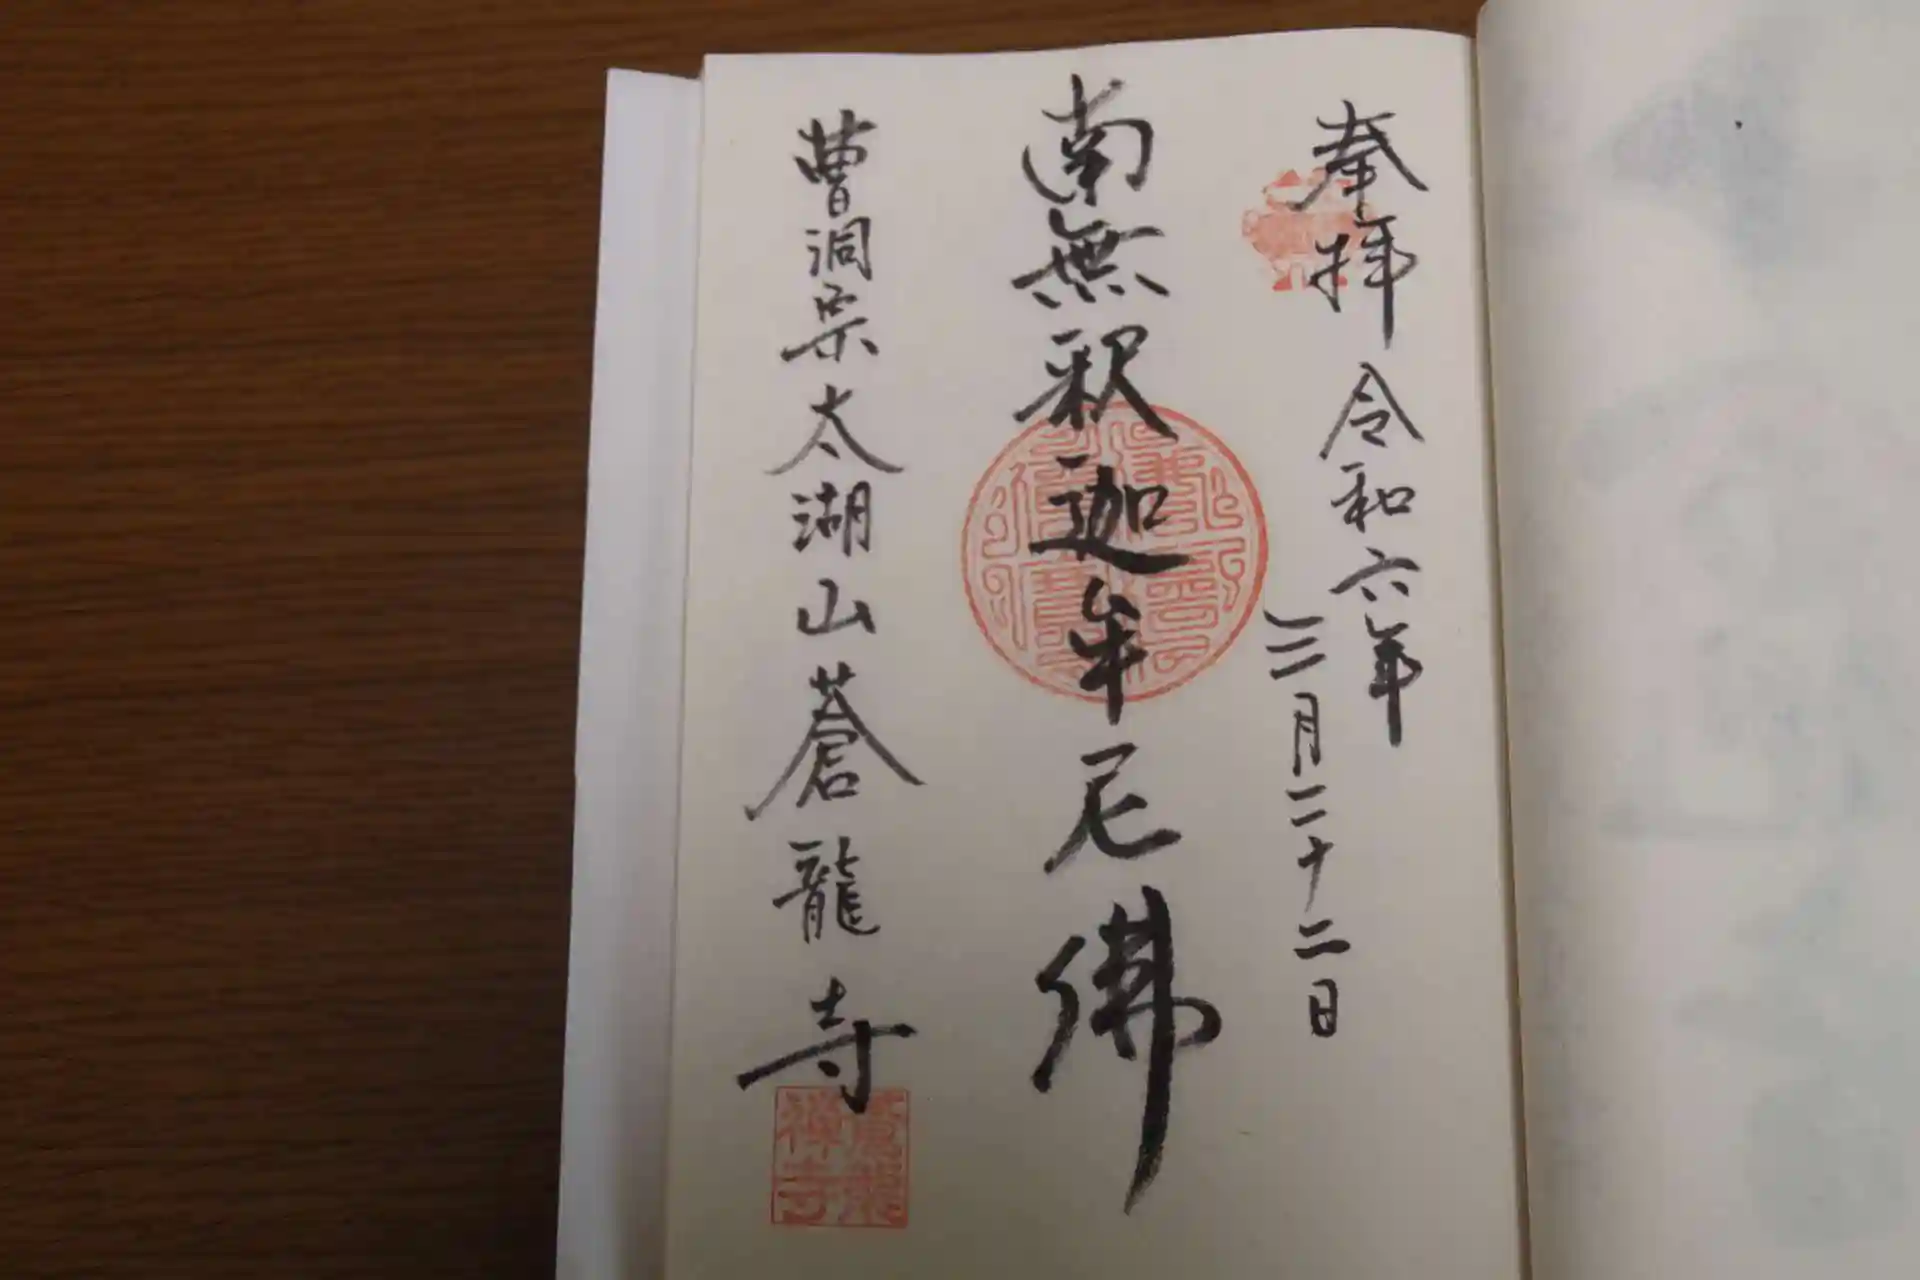 奉拝 令和六年
三月二十二日
南無釈迦牟尼佛
曹洞宗太湖山蒼龍寺
蒼龍
禅寺